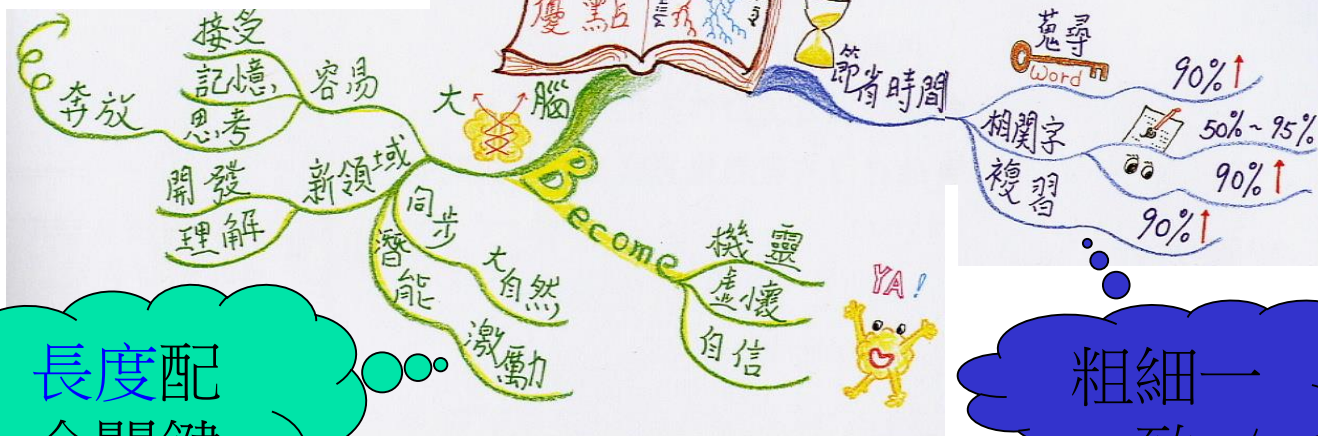 優點
大腦
容易
接受
記憶
思考
奔放
新領域
開發
理解
同步
大自然
潛能
激勵
Become
機靈
虛懷
自信
YA!
節省時間
蒐尋
Word
90%↑
相関字
50%~95%
90%↑
複習
90%↑
長度配
粗細一